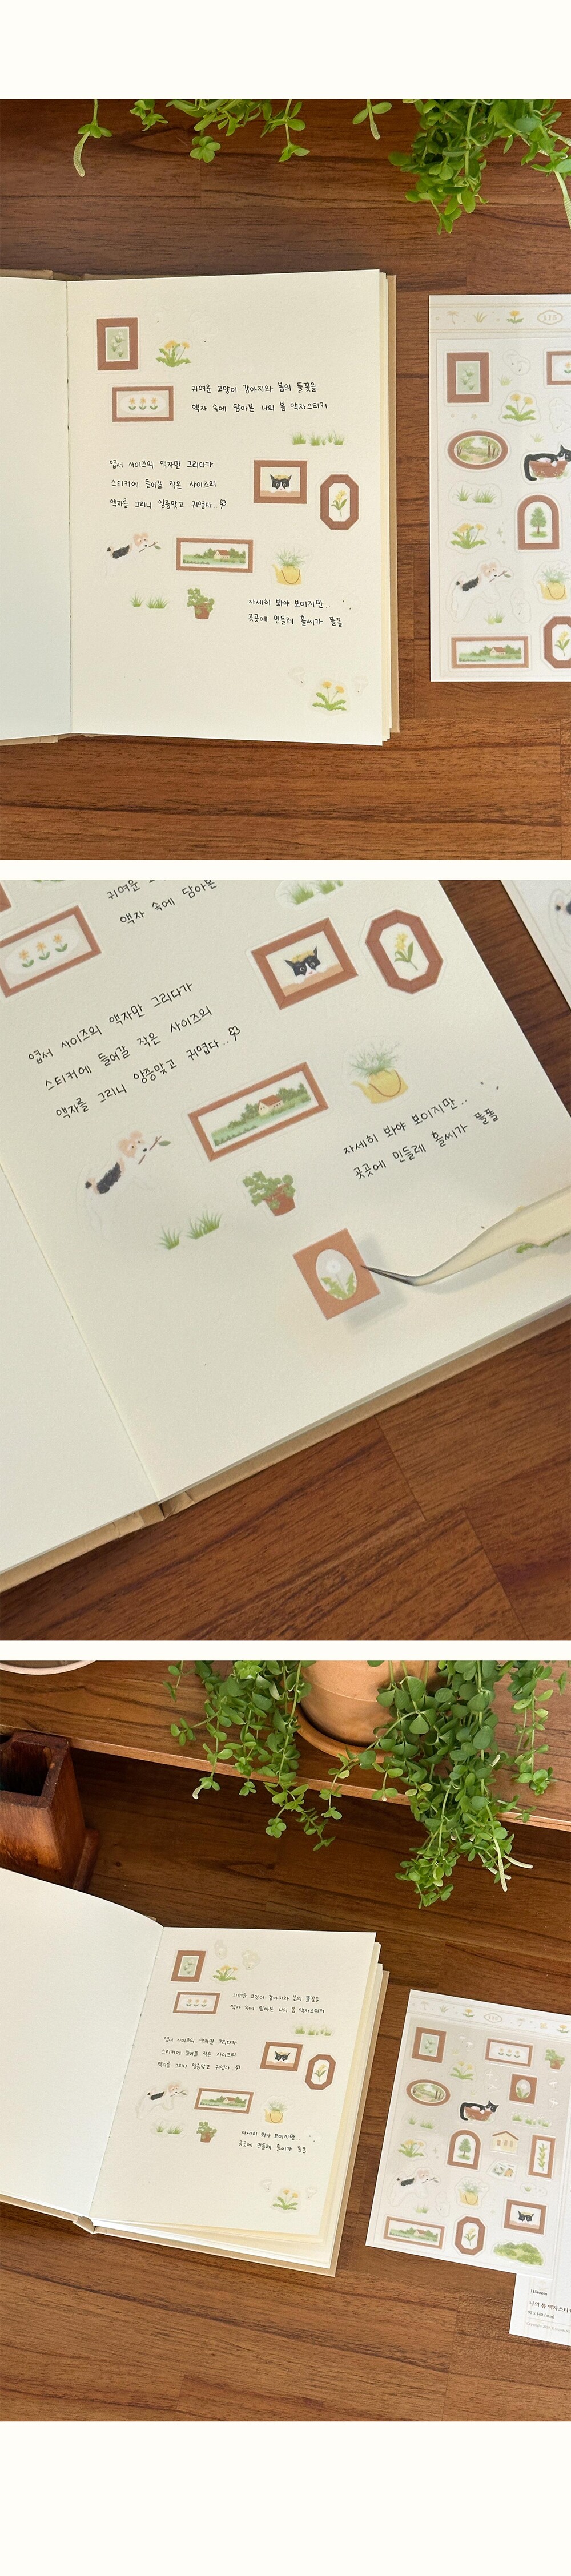 귀여운 고양이·강아지와 봄의 들꽃을
액자 속에 담아본 나의 봄 액자스티커
엽서 사이즈의 액자만 그리다가
스티커에 들어갈 작은 사이즈의
액자를 그리니 앙증맞고 귀엽다..
자세히 봐야 보이지만..
곳곳에 민들레 홀씨가 폴폴
귀여운
액자 속에 담아본
엽서 사이즈의 액자만 그리다가
스티커에 들어갈 작은 사이즈의
액자를 그리니 앙증맞고 귀엽다..
자세히 봐야 보이지만..
곳곳에 민들레 홀씨가 폴폴
귀여운 고양이·강아지와 봄의 들꽃을
액자 속에 담아본 나의 봄 액자스티커
엽서 사이즈의 액자만 그리다가
스티커에 들어갈 작은 사이즈의
액자를 그리니 앙증맞고 귀엽다..
자세히 봐야 보이지만..
곳곳에 민들레 홀씨가 폴폴
나의 봄 액자스티